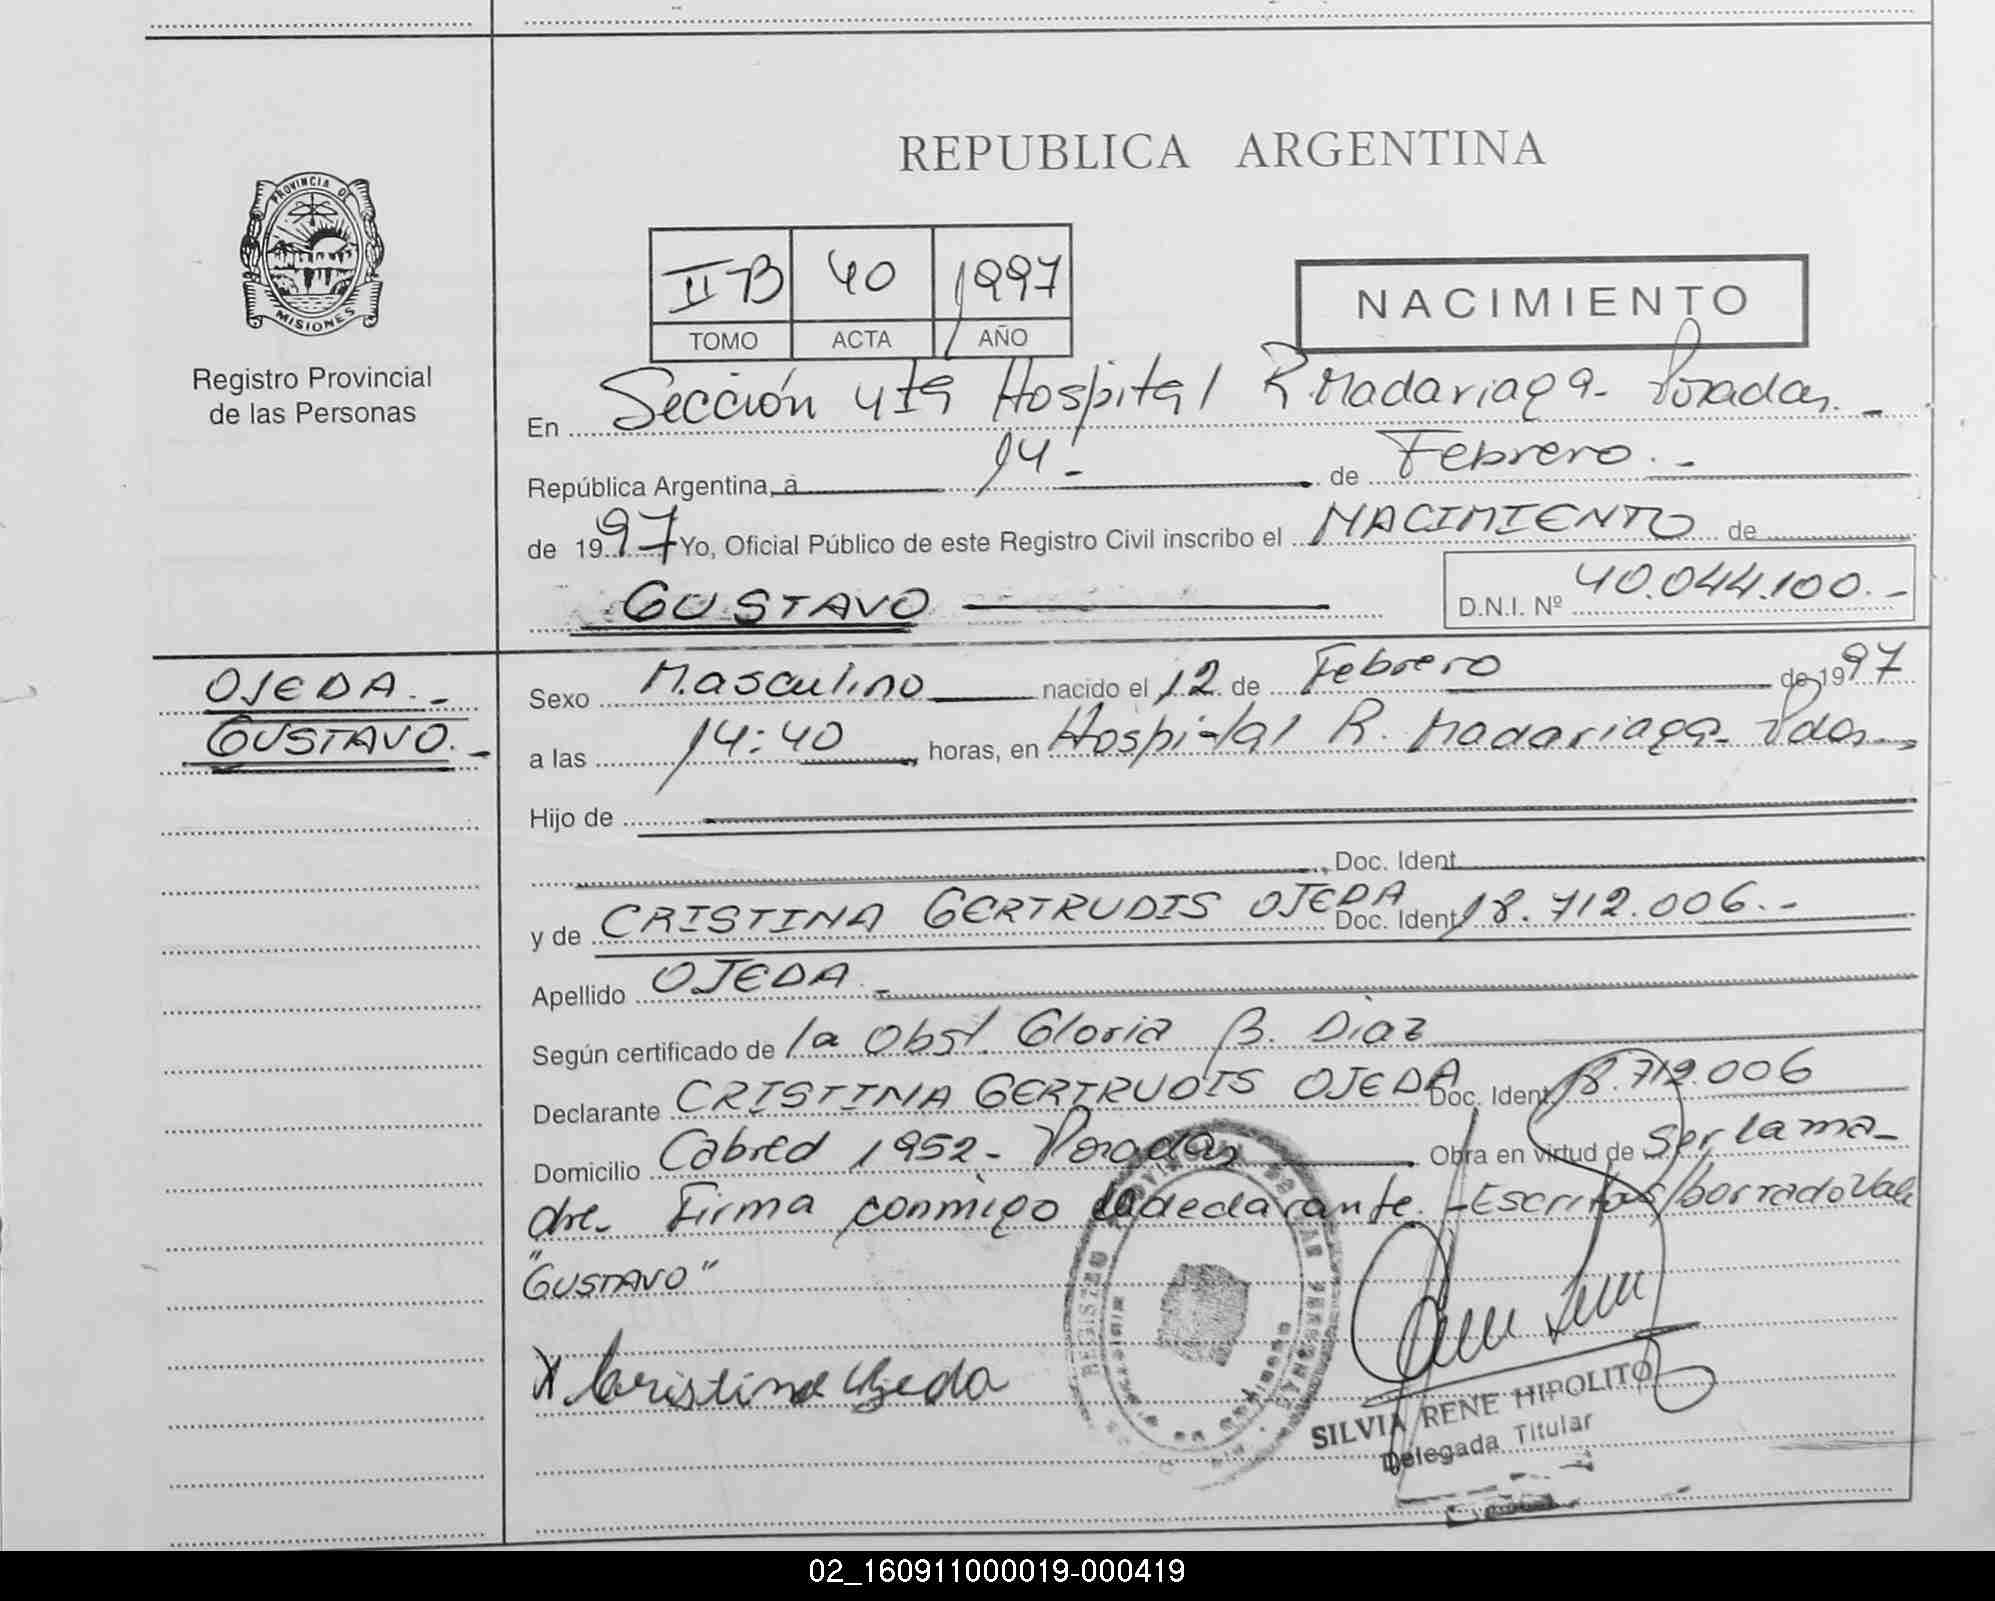 REPUBLICA ARGENTINA
PROVINCIA DE
MISIONES
Registro Provincial
de las Personas
II B 40 1997
TOMO ACTA AÑO
NACIMIENTO
En Sección 4ta Hospital R. Madariaga - Posadas. -
República Argentina, a 14 - de Febrero. -
de 1997 Yo, Oficial Público de este Registro Civil inscribo el NACIMIENTO de
GUSTAVO
D.N.I. Nº 40.044.100. -
OJEDA. -
GUSTAVO. -
Sexo Masculino nacido el 12 de Febrero de 1997
a las 14:40 horas, en Hospital R. Madariaga - Pdas. -
Hijo de
Doc. Ident.
y de CRISTINA GERTRUDIS OJEDA Doc. Ident. 18.712.006. -
Apellido OJEDA. -
Según certificado de la Obst. Gloria B. Diaz
Declarante CRISTINA GERTRUDIS OJEDA Doc. Ident. 18.712.006
Domicilio Cabred 1952 - Posadas Obra en virtud de ser la ma-
dre. Firma conmigo la declarante. - Escrito s/borrado Vale
"GUSTAVO"
X Cristina Ojeda
SILVIA RENE HIPOLITO
Delegada Titular
02_160911000019-000419